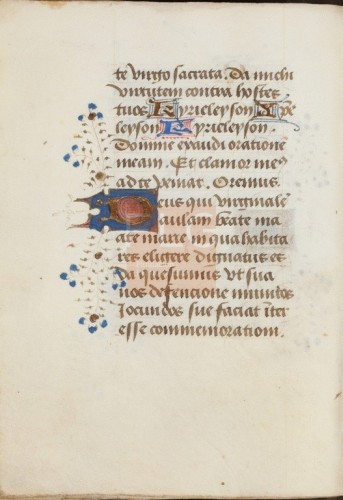 te virgo sacrata. Da michi
virtutem contra hostes
tuos Kyrieleyson Xpe
leyson Kyrieleyson.
Domine exaudi oratione
meam. Et clamor meus
ad te veniat. Oremus
Deus qui virginale
aulam beate ma
rie in qua habita
res eligere dignatus es
da quesumus vt sua
nos defencione
Iocundos sue faciat inter
esse commemorationi.